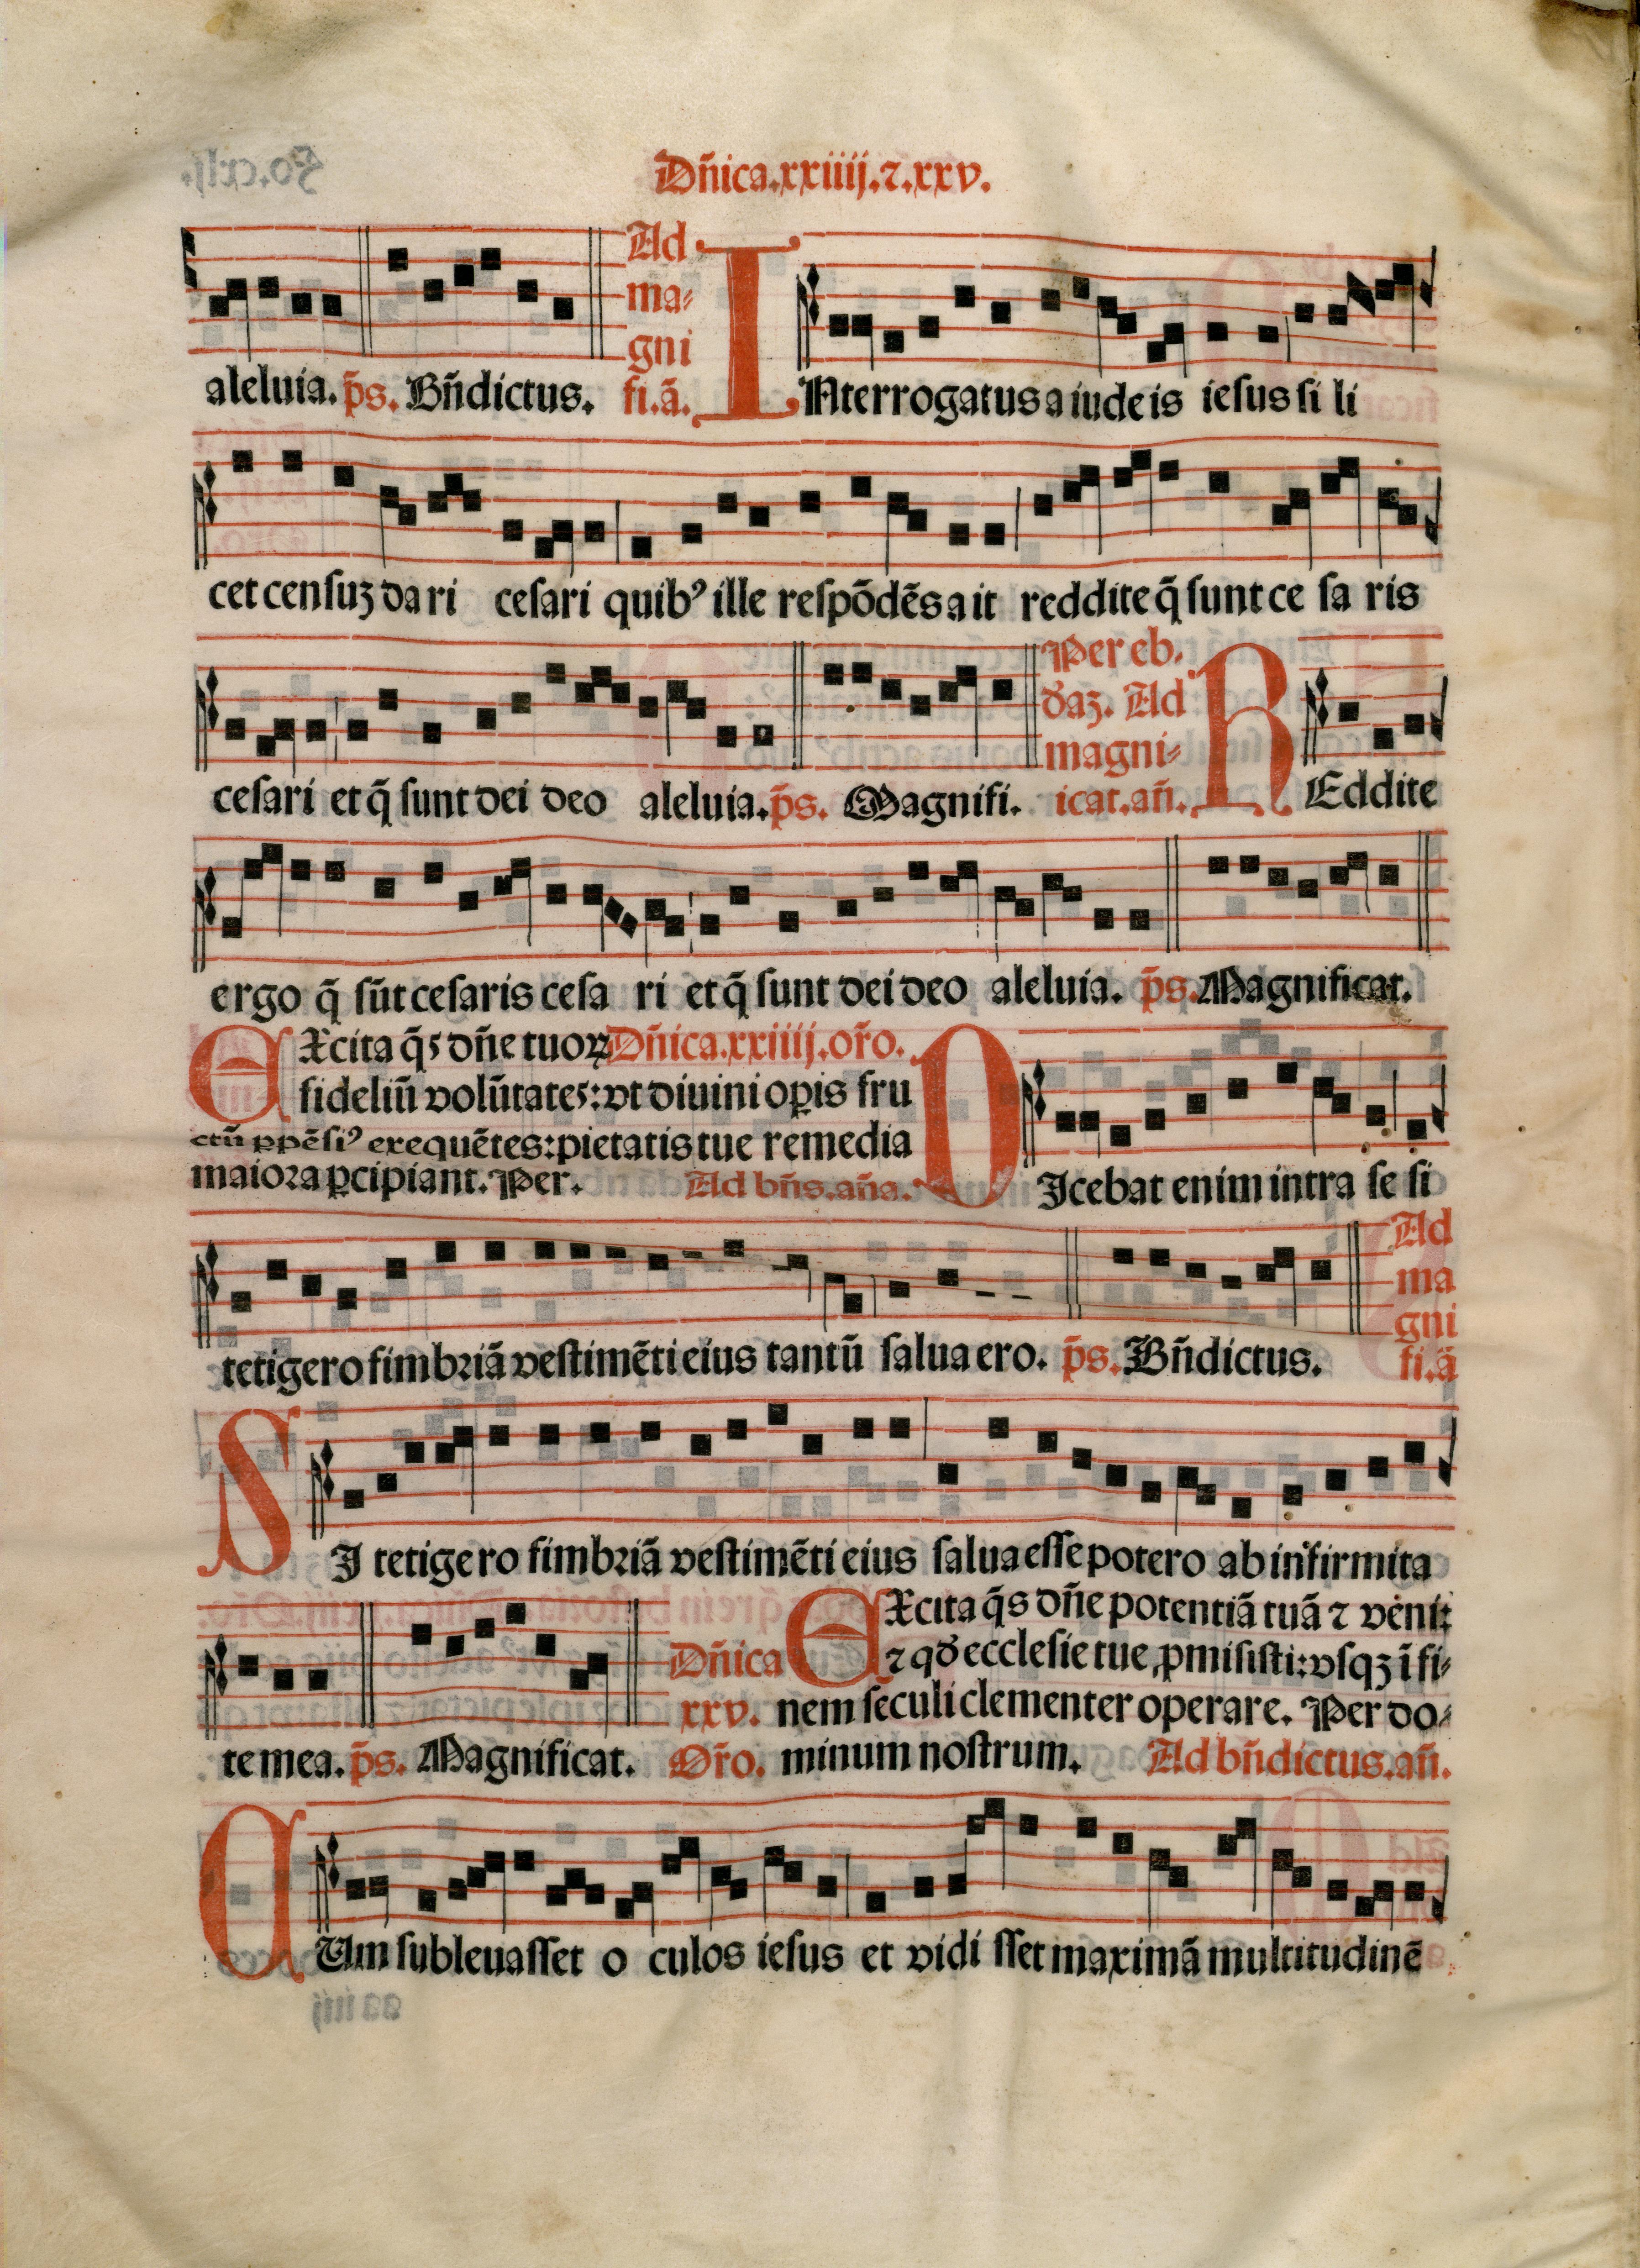 Dñica.xxiiij.⁊.xxv.
aleluia. p̄s. Bñdictus.
Ad
ma⸗
gni
fi.ã.
INterrogatus a iudeis iesus si li
cet censuꝫ dari cesari quibꝰ ille respõdẽs ait reddite q̄ sunt ce sa ris
cesari et q̄ sunt dei deo aleluia. p̄s. Magnifi.
Per eb.
daꝫ. Ad
magni⸗
icat.añ.
REddite
ergo q̄ sũt cesaris cesa ri et q̄ sunt dei deo aleluia. p̄s. Magnificat.
EXcita q̄s dñe tuoꝝ Dñica.xxiiij.or̃o.
fideliũ volũtates: vt diuini oꝑis fru
ctũ ꝓpẽsiꝰ exequẽtes: pietatis tue remedia
maiora ꝑcipiant. Per. Ad bñs.aña.
DIcebat enim intra se si
tetigero fimbriã vestimẽti eius tantũ salua ero. p̄s. Bñdictus.
Ad
ma
gni
fi.ã
SI tetigero fimbriã vestimẽti eius salua esse potero ab infirmita
te mea. p̄s. Magnificat.
Dñica
xxv.
Or̃o.
EXcita q̄s dñe potentiã tuã ⁊ veni:
⁊ qď ecclesie tue ꝓmisisti: vsqꝫ ĩ fi⸗
nem seculi clementer operare. Per do⸗
minum nostrum. Ad bñdictus.añ.
CUm subleuasset o culos iesus et vidi sset maximã multitudinẽ